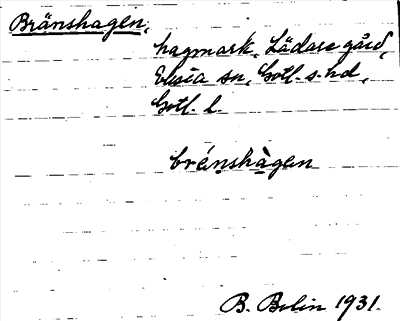 Bränshagen,
hagmark, Lädars gård,
Eksta sn, Gotl. s. hd,
Gotl. l.
brénshàgen
B. Bolin 1931.